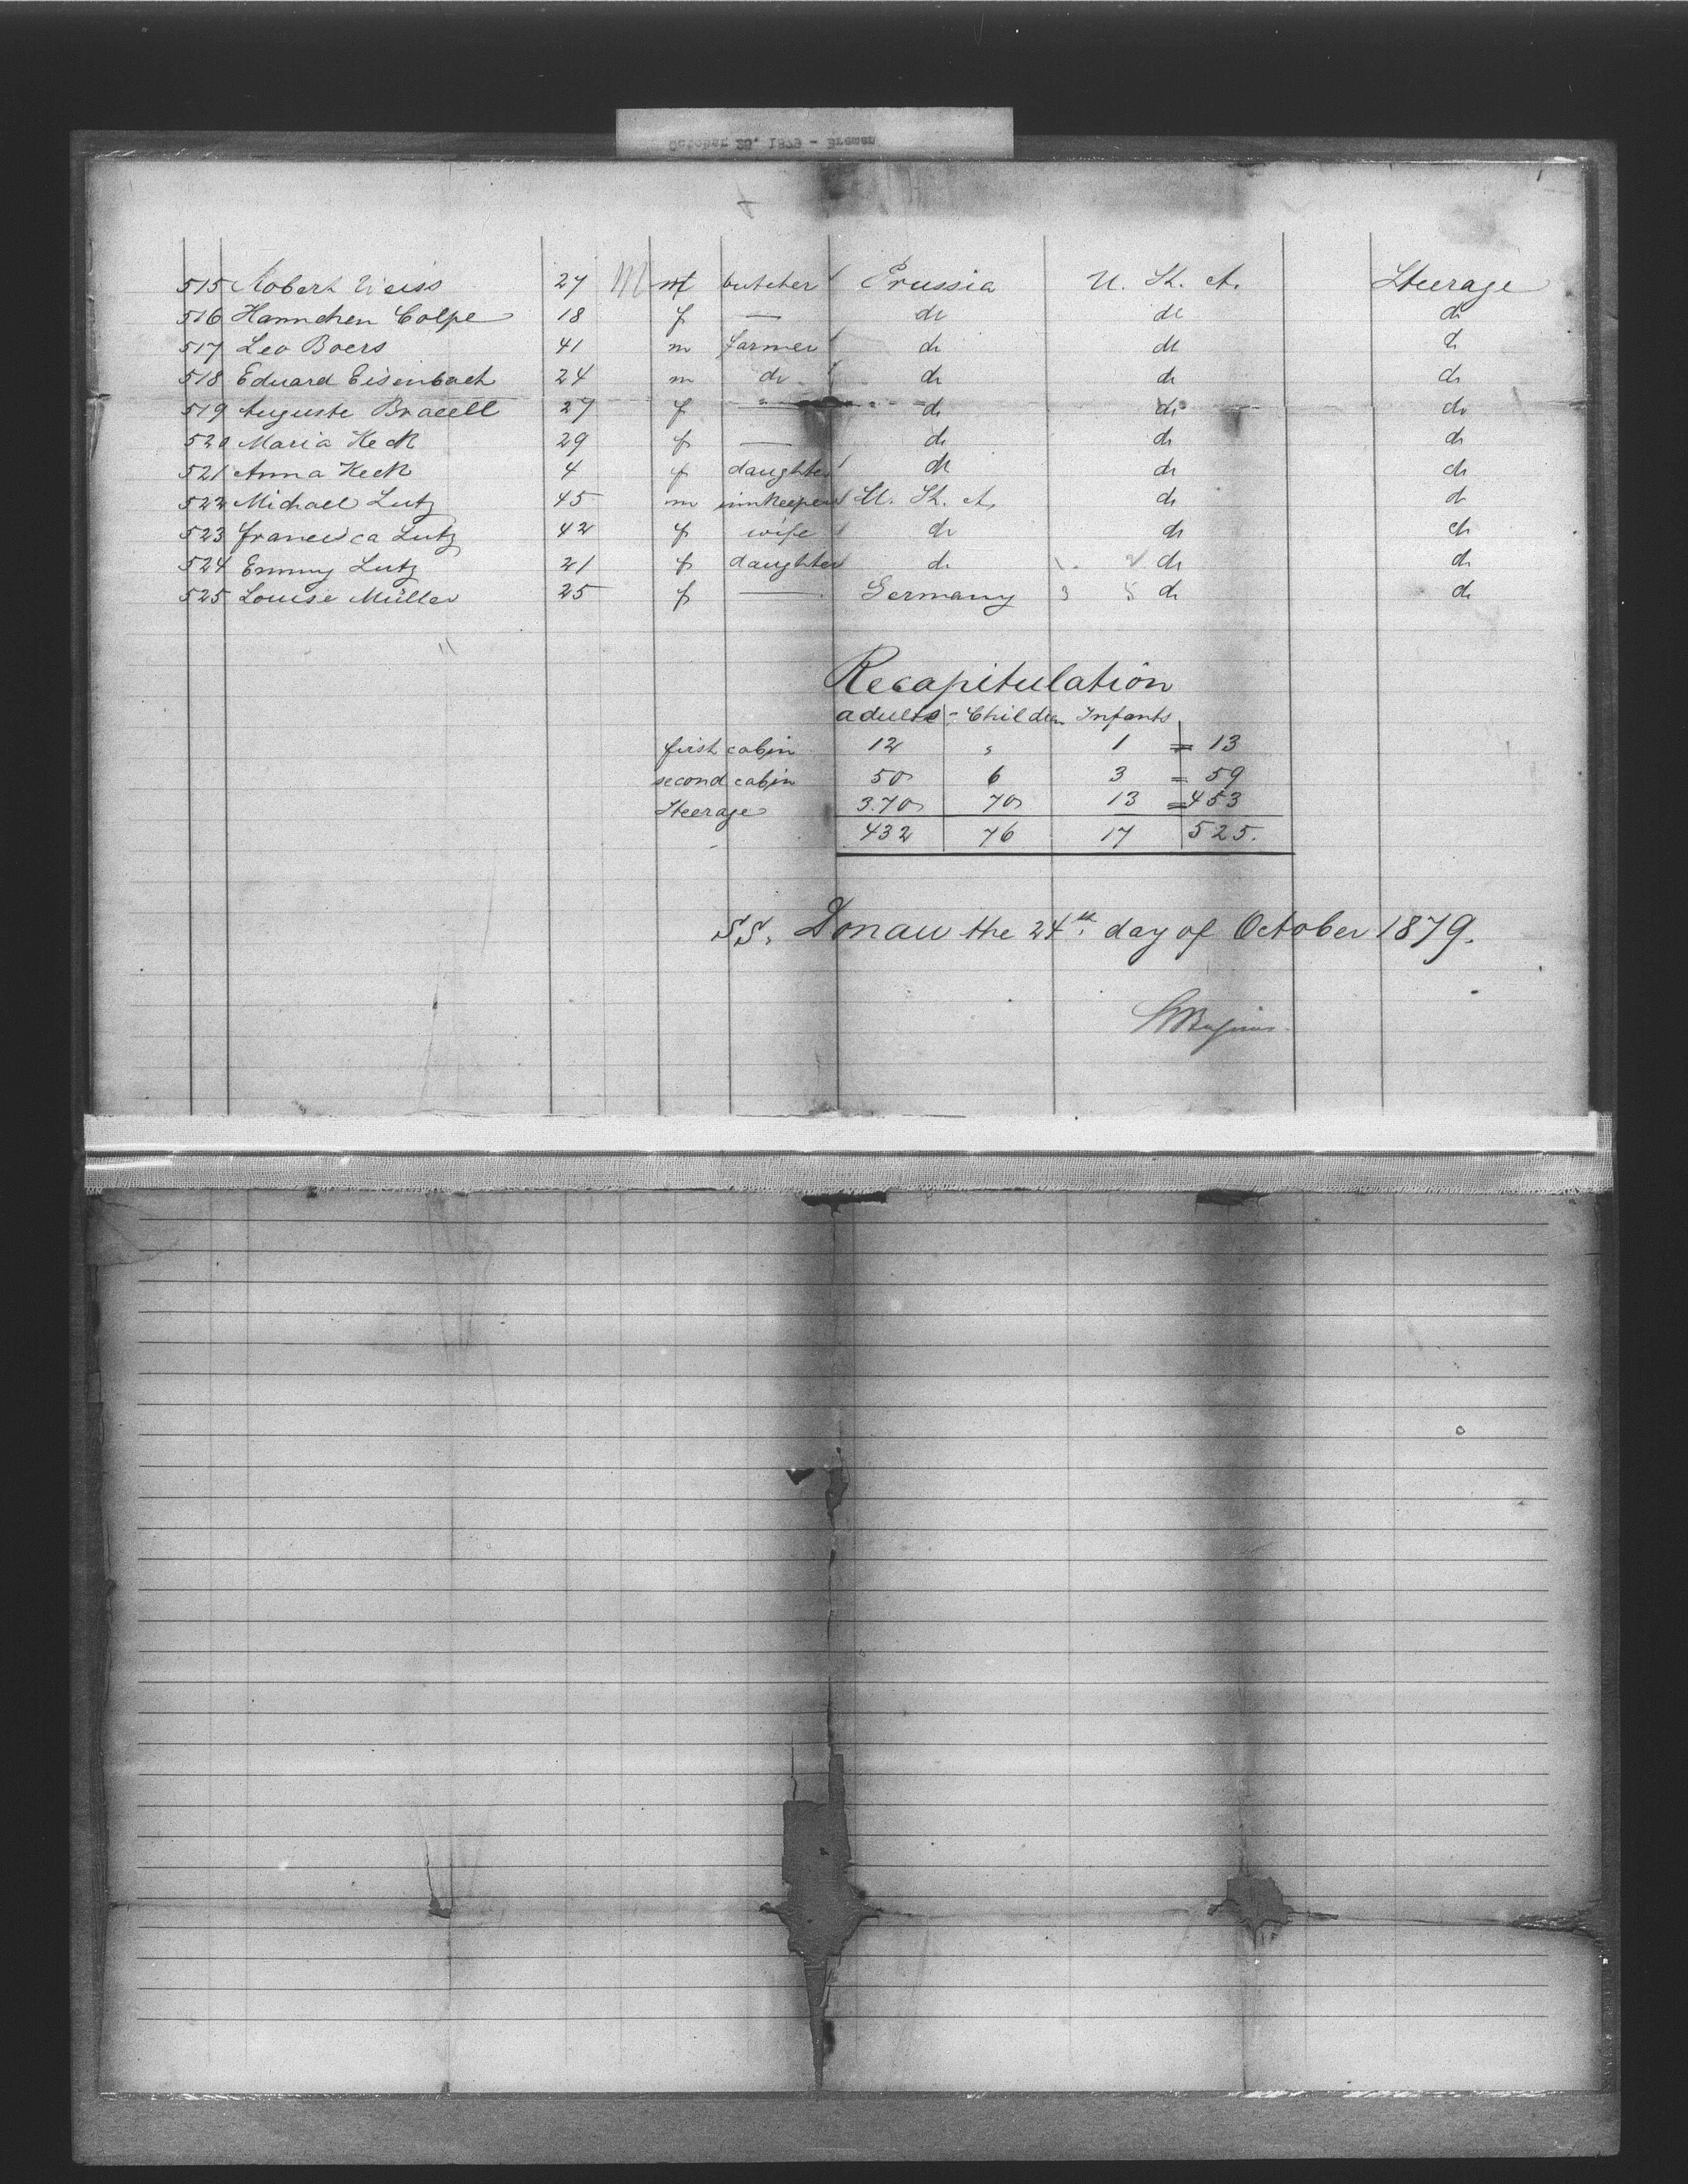 October 25, 1879 - Bremen
515 Robert Weiss 27 m butcher Prussia U. St. A. Steerage
516 Hannchen Colpe 18 f — do do do
517 Leo Boers 41 m farmer do do do
518 Eduard Eisenbach 24 m do do do do
519 Auguste Bracell 27 f — do do do
520 Maria Heck 29 f — do do do
521 Anna Heck 4 f daughter do do do
522 Michael Lutz 45 m innkeeper U. St. A. do do
523 Francisca Lutz 42 f wife do do do
524 Emmy Lutz 21 f daughter do do do
525 Louise Müller 25 f — Germany do do
Recapitulation
adults - Children Infants
first cabin 12 " 1 = 13
second cabin 50 6 3 = 59
Steerage 370 70 13 = 453
432 76 17 525.
SS. Donau the 24th day of October 1879.